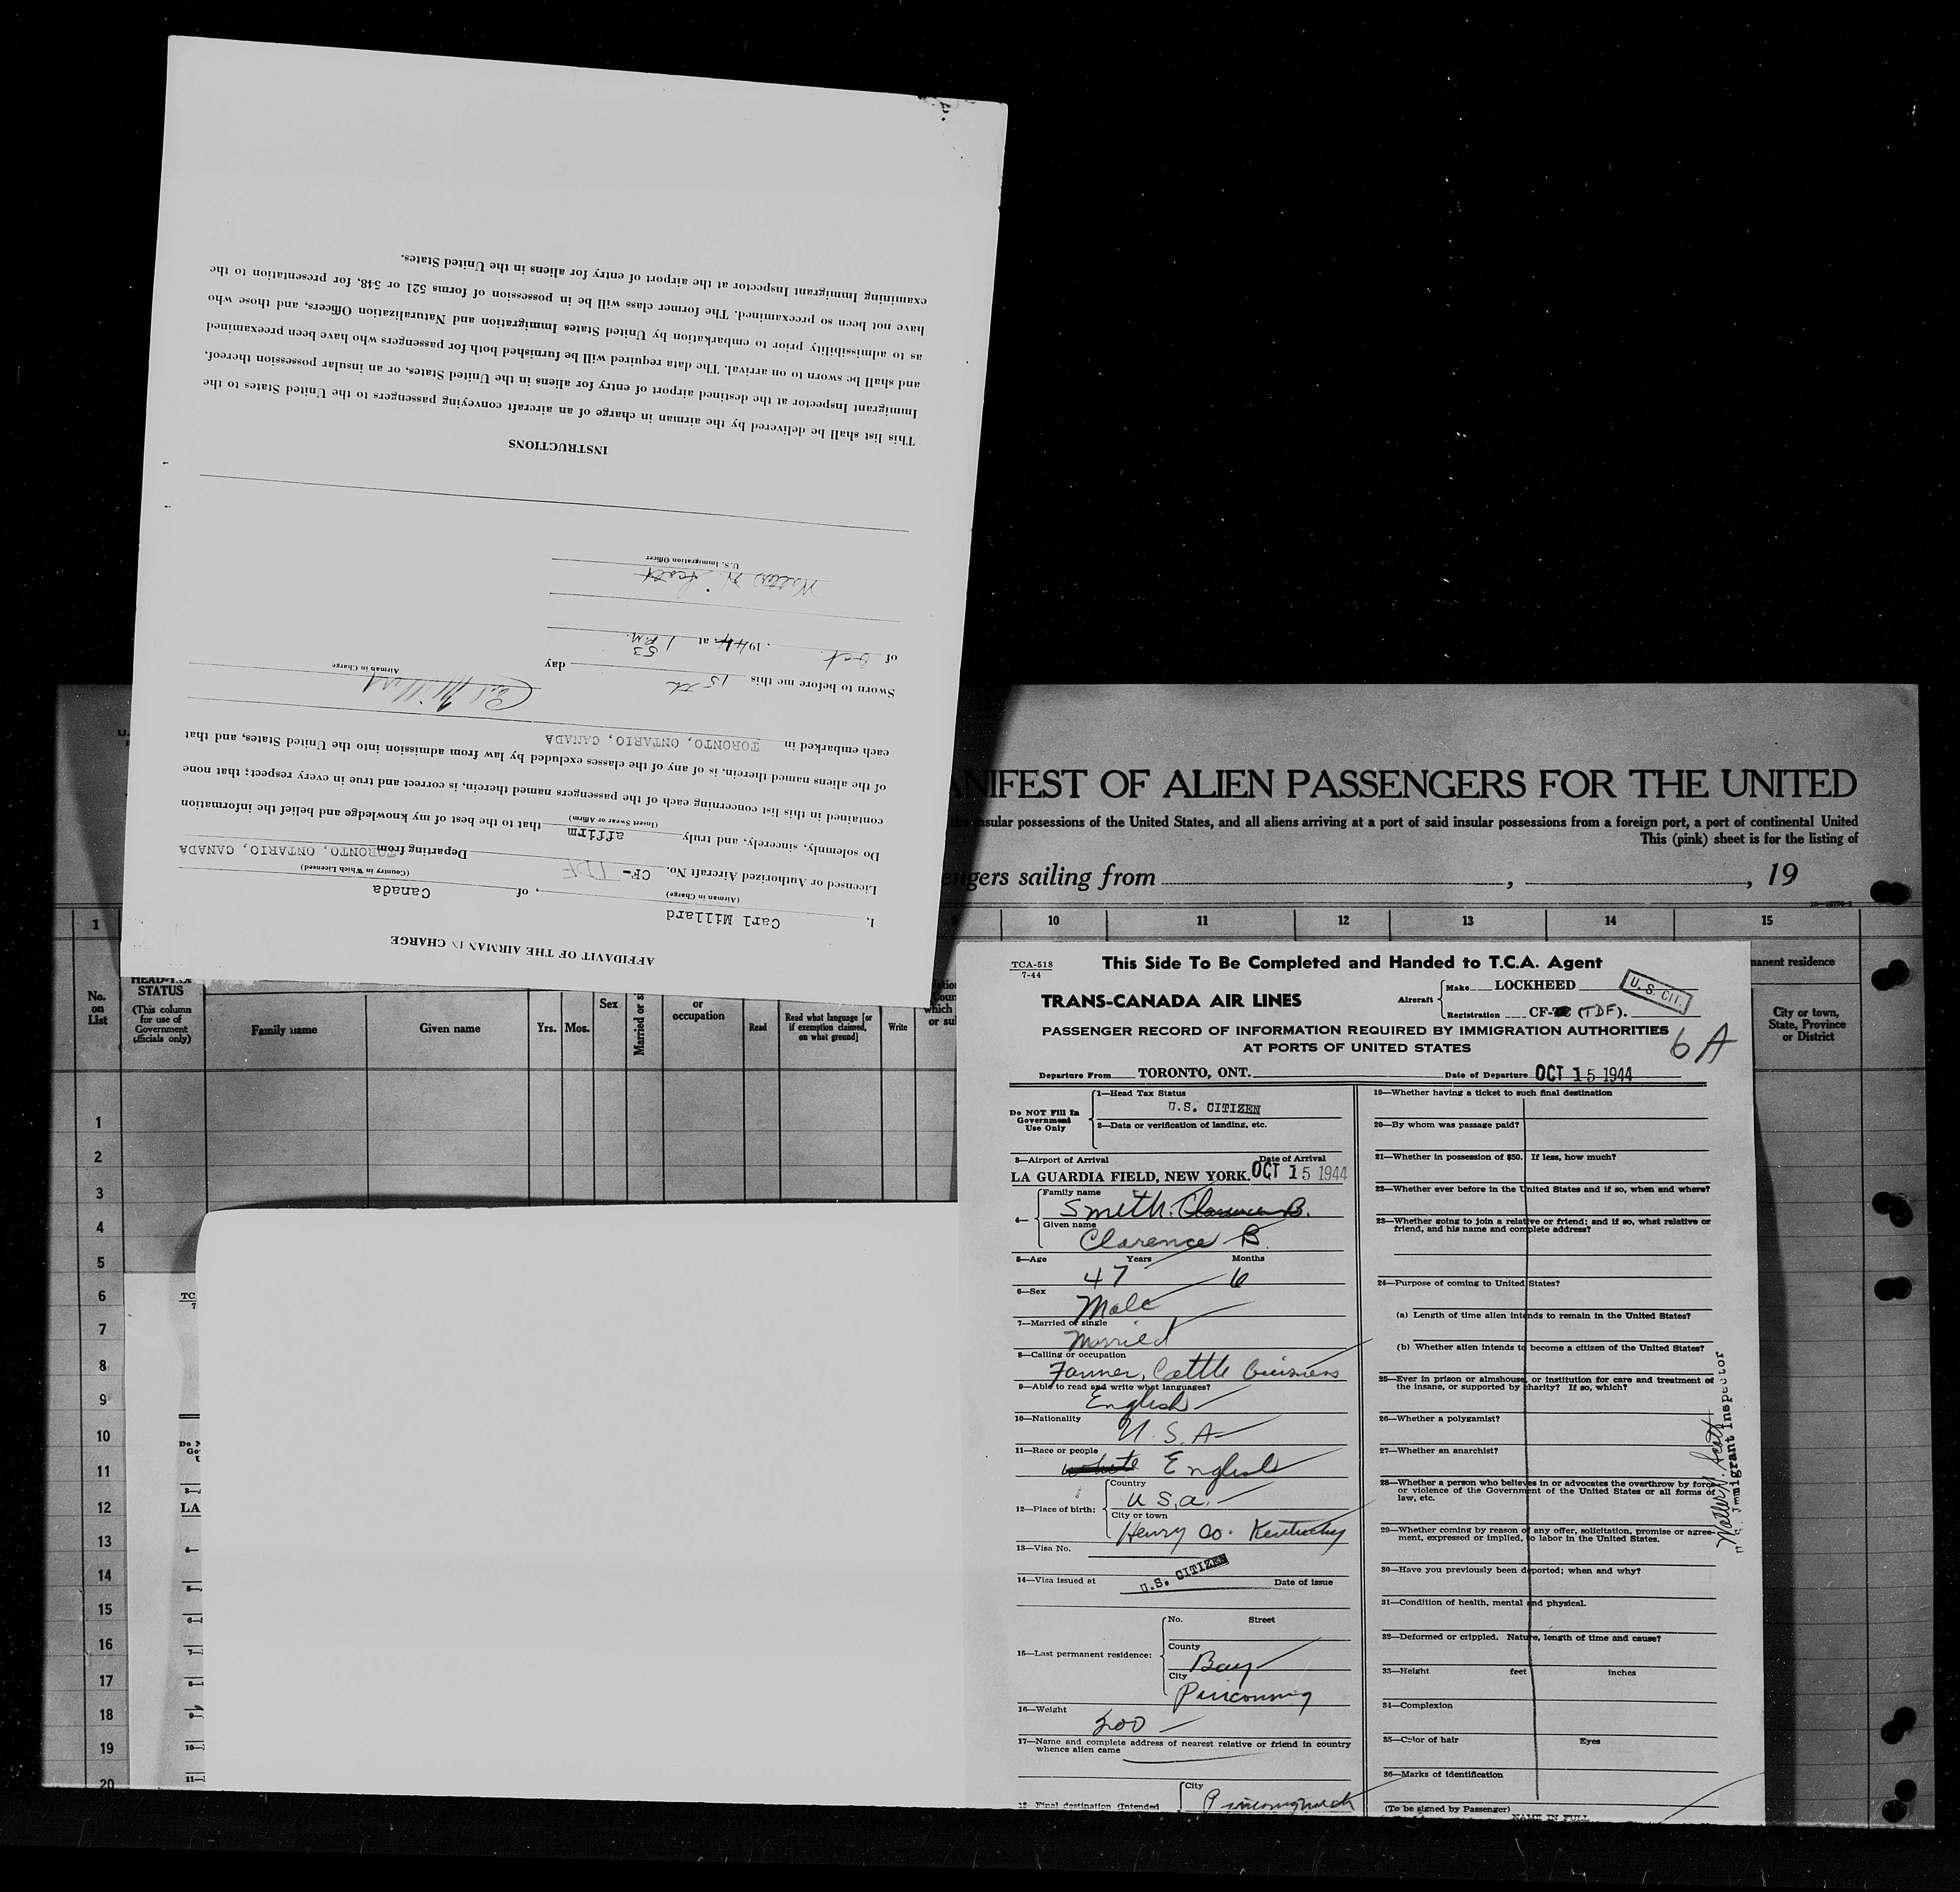 AFFIDAVIT OF THE AIRMAN IN CHARGE
I, Carl Millard, of Canada
(Airman in Charge) (Country in Which Licensed)
Licensed or Authorized Aircraft No. CF- TDF Departing from TORONTO, ONTARIO, CANADA
Do solemnly, sincerely, and truly affirm that to the best of my knowledge and belief the information
(Insert Swear or Affirm)
contained in this list concerning each of the passengers named therein, is correct and true in every respect; that none
of the aliens named therein. is of any of the classes excluded by law from admission into the United States, and that
each embarked in TORONTO, ONTARIO, CANADA
Carl Millard
Airman in Charge
Sworn to before me this 15th day
of Oct. . 1944 at 1 53 P.M.
Walter H. Scott
U.S. Immigration Officer
INSTRUCTIONS
This list shall be delivered by the airman in charge of an aircraft conveying passengers to the United States to the
Immigrant Inspector at the destined airport of entry for aliens in the United States, or an insular possession thereof,
and shall be sworn to on arrival. The data required will be furnished both for passengers who have been preexamined
as to admissibility prior to embarkation by United States Immigration and Naturalization Officers, and those who
have not been so preexamined. The former class will be in possession of forms 521 or 548, for presentation to the
examining Immigrant Inspector at the airport of entry for aliens in the United States.
ANIFEST OF ALIEN PASSENGERS FOR THE UNITED
insular possessions of the United States, and all aliens arriving at a port of said insular possessions from a foreign port, a port of continental United
This (pink) sheet is for the listing of
engers sailing from , , 19
1 9 10 11 12 13 14 15
No. on List
HEAD-TAX STATUS
(This column for use of Government officials only)
Family name
Given name
Yrs. Mos.
Sex
Married or s
or occupation
Read
Read what language [or if exemption claimed, on what ground]
Write
manent residence
City or town, State, Province or District
1
2
3
4
5
6
7
8
9
10
11
12
13
14
15
16
17
18
19
20
TCA-518
7-44
This Side To Be Completed and Handed to T.C.A. Agent
TRANS-CANADA AIR LINES
Aircraft Make LOCKHEED
Registration CF- (TDF).
U. S. CIT.
PASSENGER RECORD OF INFORMATION REQUIRED BY IMMIGRATION AUTHORITIES
AT PORTS OF UNITED STATES
6A
Departure From TORONTO, ONT. Date of Departure OCT 15 1944
Do NOT Fill In Government Use Only
1—Head Tax Status
U.S. CITIZEN
2—Data or verification of landing, etc.
3—Airport of Arrival Date of Arrival
LA GUARDIA FIELD, NEW YORK. OCT 15 1944
4— Family name
Smith. Clarence B.
Given name
Clarence B.
5—Age Years Months
47 6
6—Sex
Male
7—Married or single
Married
8—Calling or occupation
Farmer, Cattle Business
9—Able to read and write what languages?
English
10—Nationality
U.S.A
11—Race or people
white English
12—Place of birth: Country
U.S.a.
City or town
Henry Co. Kentucky
13—Visa No.
U.S. CITIZEN
14—Visa issued at Date of issue
15—Last permanent residence: No. Street
County
Bay
City
Pinconning
16—Weight
200
17—Name and complete address of nearest relative or friend in country
whence alien came
18—Final destination (Intended City
Pinconning Mich
19—Whether having a ticket to such final destination
20—By whom was passage paid?
21—Whether in possession of $50. If less, how much?
22—Whether ever before in the United States and if so, when and where?
23—Whether going to join a relative or friend; and if so, what relative or
friend, and his name and complete address?
24—Purpose of coming to United States?
(a) Length of time alien intends to remain in the United States?
(b) Whether alien intends to become a citizen of the United States?
25—Ever in prison or almshouse, or institution for care and treatment of
the insane, or supported by charity? If so, which?
26—Whether a polygamist?
27—Whether an anarchist?
28—Whether a person who believes in or advocates the overthrow by force
or violence of the Government of the United States or all forms of
law, etc.
29—Whether coming by reason of any offer, solicitation, promise or agree-
ment, expressed or implied, to labor in the United States.
30—Have you previously been deported; when and why?
31—Condition of health, mental and physical.
32—Deformed or crippled. Nature, length of time and cause?
33—Height feet inches
34—Complexion
35—Color of hair Eyes
36—Marks of identification
(To be signed by Passenger)
NAME IN FULL
Walter H. Scott
U.S. Immigrant Inspector